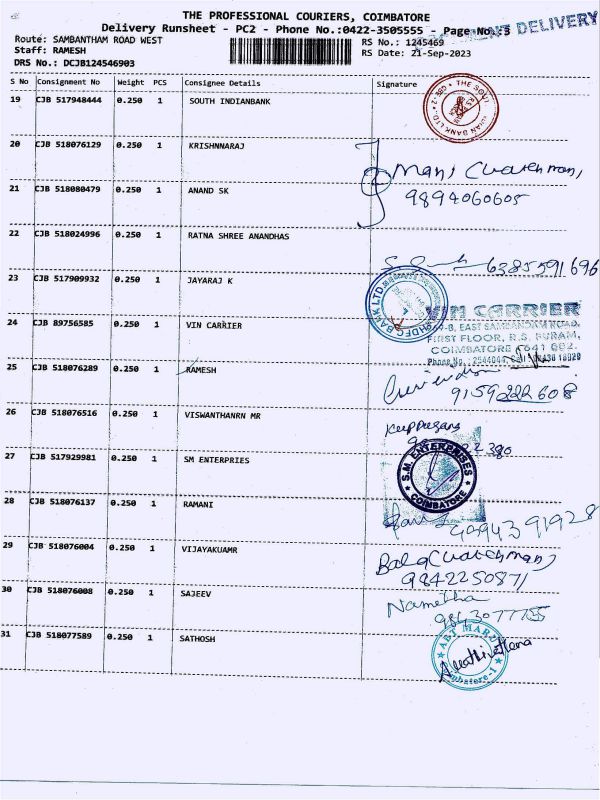 THE PROFESSIONAL COURIERS, COIMBATORE
Delivery Runsheet - PC2 - Phone No.:0422-3505555 - Page No.:3
DELIVERY
Route: SAMBANTHAM ROAD WEST
RS No.: 1245469
Staff: RAMESH
RS Date: 21-Sep-2023
DRS No.: DCJB124546903
S No Consignment No Weight PCS Consignee Details Signature
19 CJB 517948444 0.250 1 SOUTH INDIANBANK
20 CJB 518076129 0.250 1 KRISHNNARAJ
Mani
21 CJB 518080479 0.250 1 ANAND SK
9894060605
22 CJB 518024996 0.250 1 RATNA SHREE ANANDHAS
6385591696
23 CJB 517909932 0.250 1 JAYARAJ K
HDFC BANK LTD.
24 CJB 89756585 0.250 1 VIN CARRIER
VIN CARRIER
FIRST FLOOR, R.S. PURAM,
COIMBATORE 641 002.
25 CJB 518076289 0.250 1 RAMESH
9159222608
26 CJB 518076516 0.250 1 VISWANTHANRN MR
27 CJB 517929981 0.250 1 SM ENTERPRIES
S.M. ENTERPRISES
COIMBATORE
28 CJB 518076137 0.250 1 RAMANI
29 CJB 518076004 0.250 1 VIJAYAKUAMR
Bala (watchman)
9842250871
30 CJB 518076008 0.250 1 SAJEEV
Nametha
9843077755
31 CJB 518077589 0.250 1 SATHOSH